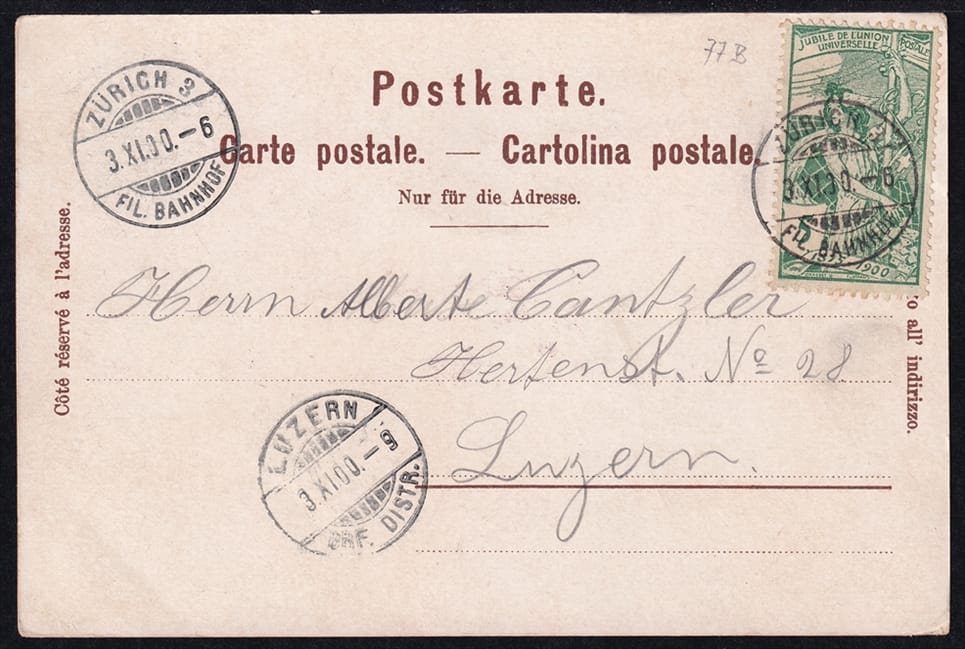 77B
JUBILÉ DE L'UNION POSTALE
UNIVERSELLE
5
1900
ZÜRICH 3
3.XI.00.–6
FIL. BAHNHOF
ZÜRICH 3
3.XI.00.–6
FIL. BAHNHOF
Postkarte.
Carte postale. — Cartolina postale.
Nur für die Adresse.
Côté réservé à l'adresse.
all' indirizzo.
Herrn Alberte Cantzler
Hertenst. No 28
Luzern.
LUZERN
3.XI.00.–9
BRF. DISTR.